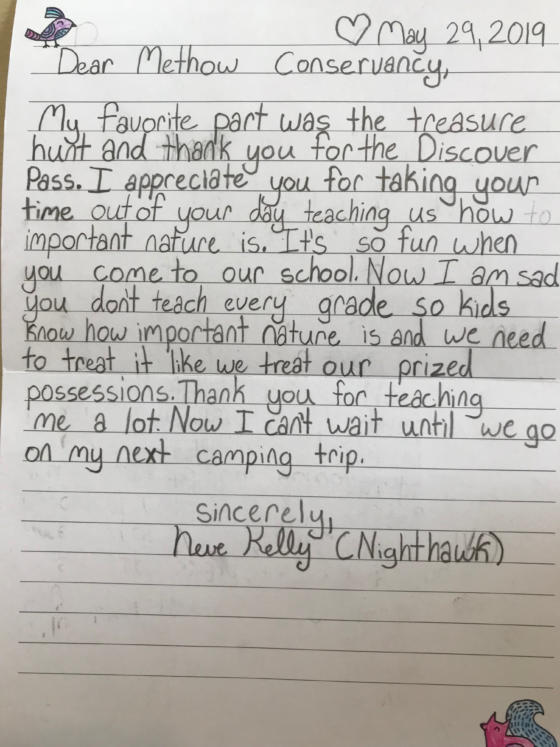 ♡ May 29, 2019
Dear Methow Conservancy,
My favorite part was the treasure
hunt and thank you for the Discover
Pass. I appreciate you for taking your
time out of your day teaching us how to
important nature is. It's so fun when
you come to our school. Now I am sad
you don't teach every grade so kids
know how important nature is and we need
to treat it like we treat our prized
possessions. Thank you for teaching
me a lot. Now I can't wait until we go
on my next camping trip.
sincerely,
Neve Kelly (Nighthawk)